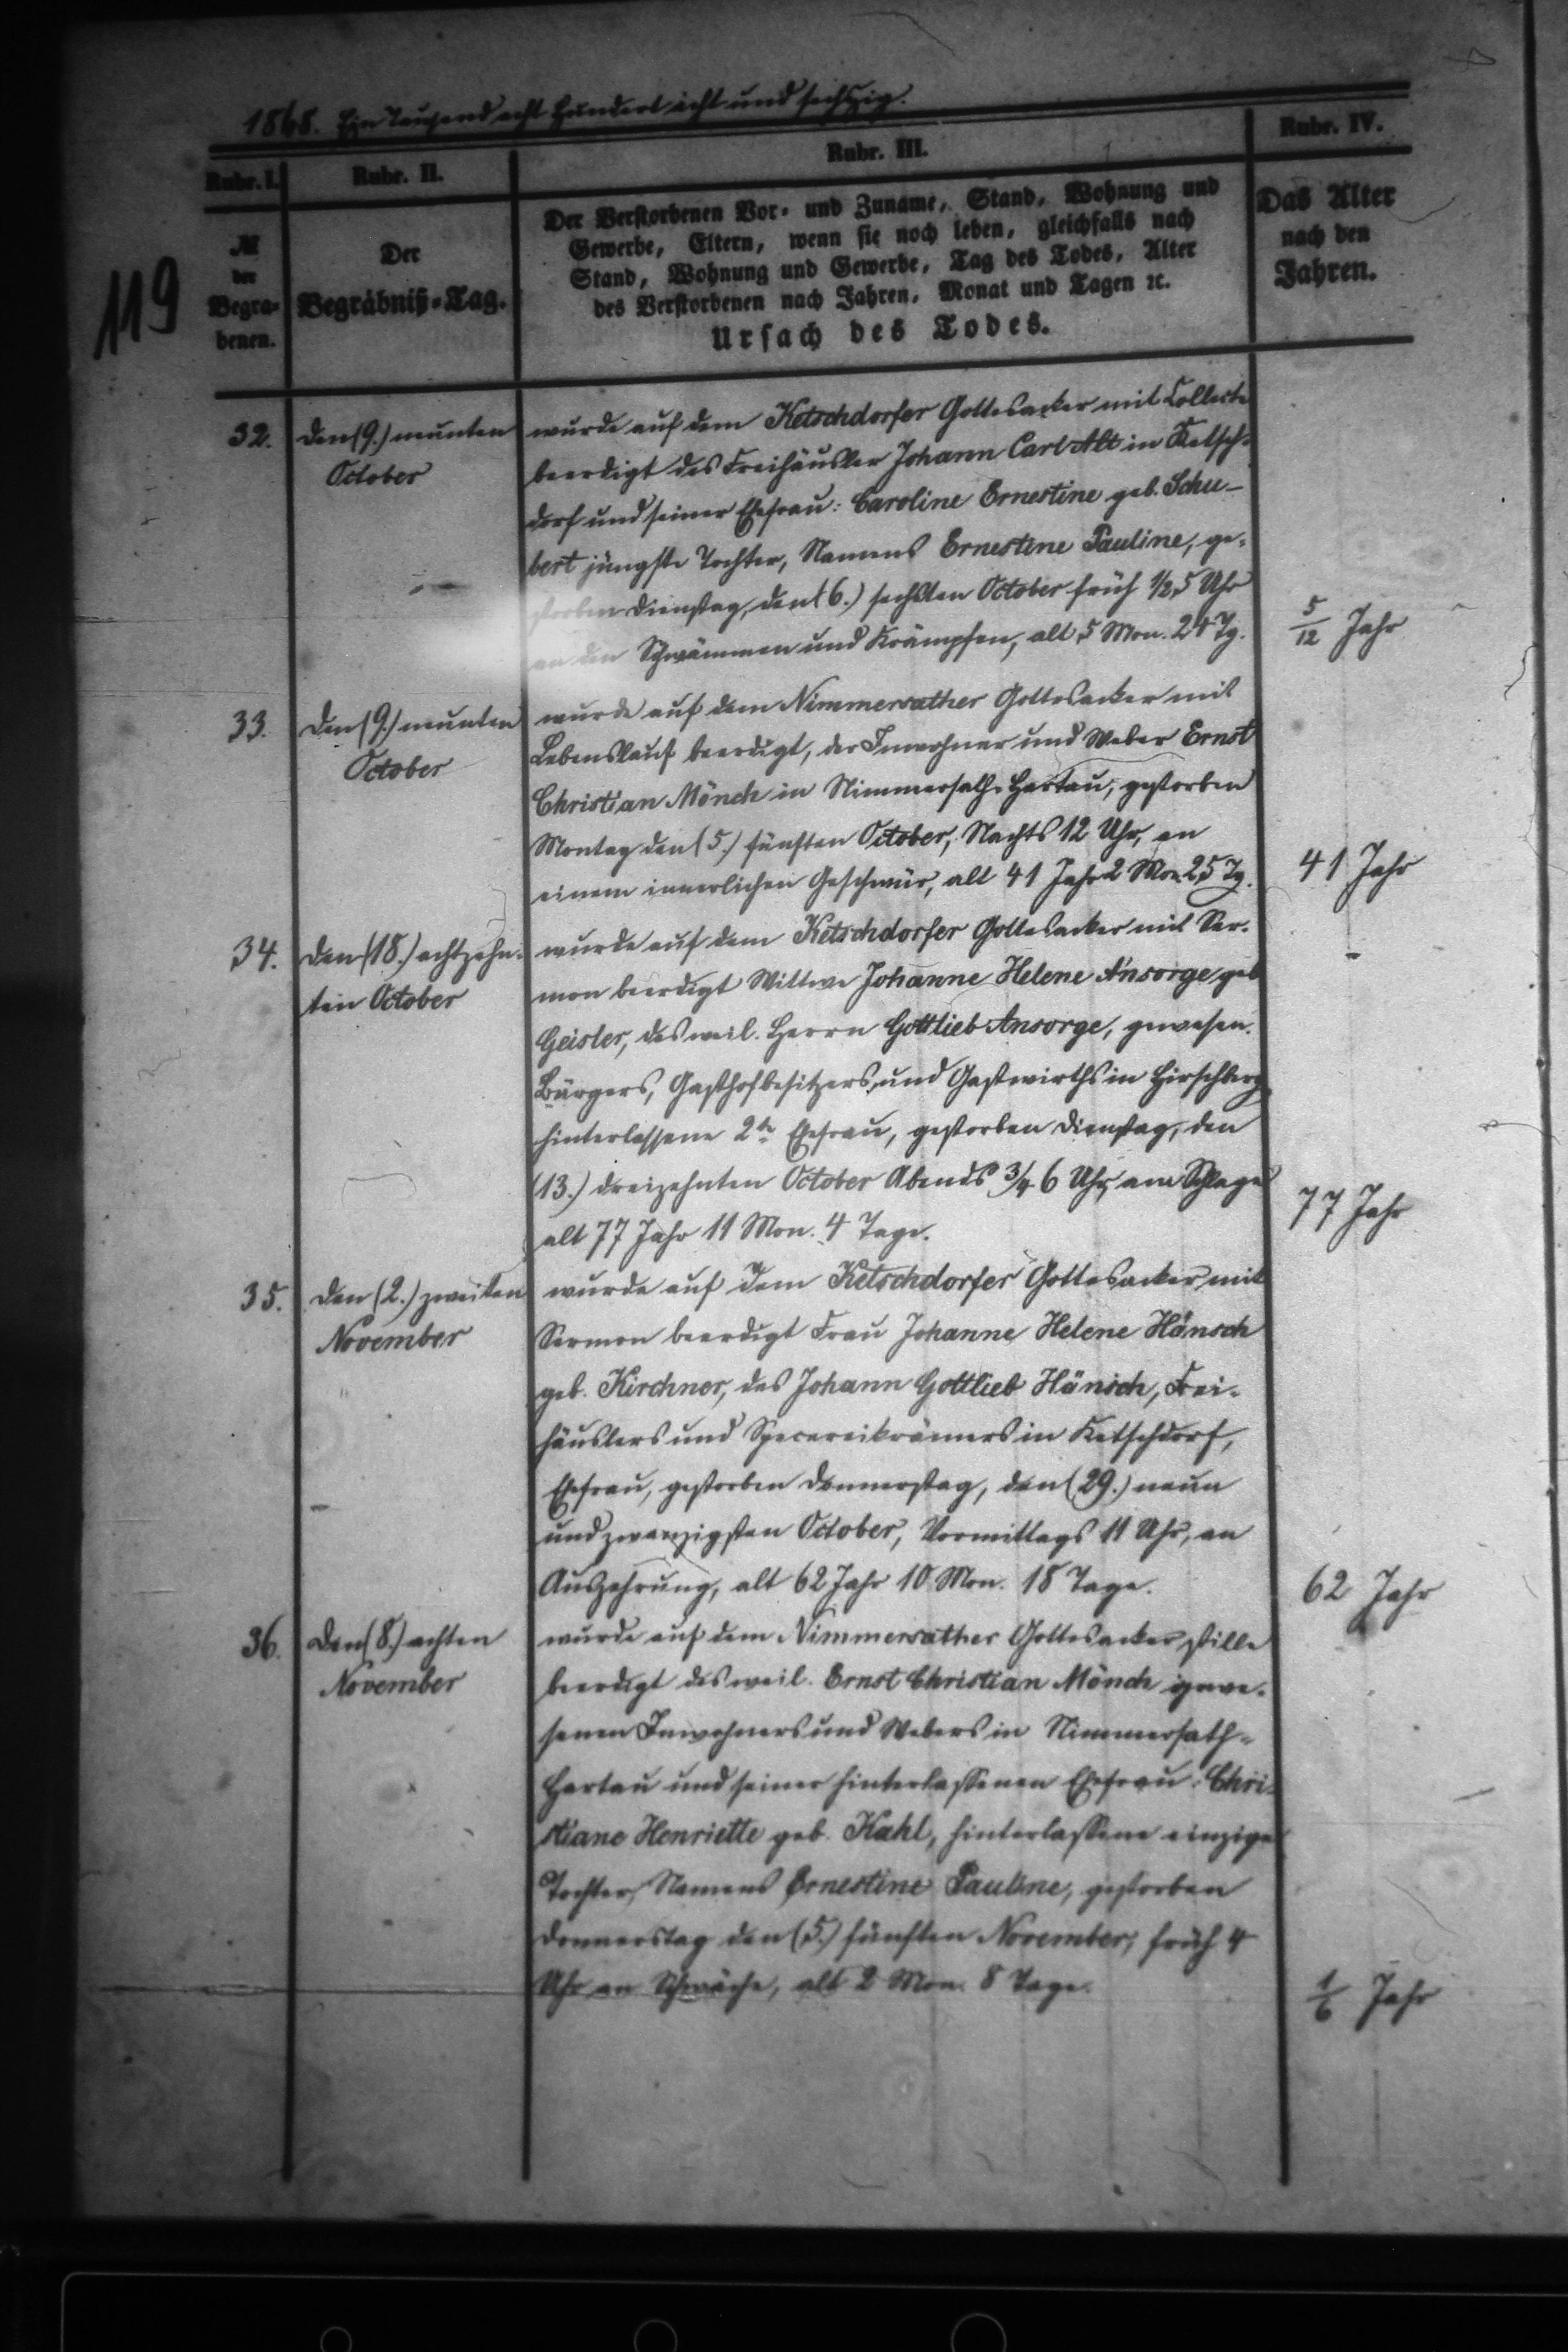 1868. Ein Tausend acht hundert acht und sechszig.
Rubr. I.
Rubr. II.
Rubr. III.
Rubr. IV.
119
№
der
Begra-
benen.
Der
Begräbniß-Tag.
Der Verstorbenen Vor- und Zuname, Stand, Wohnung und
Gewerbe, Eltern, wenn sie noch leben, gleichfalls nach
Stand, Wohnung und Gewerbe, Tag des Todes, Alter
des Verstorbenen nach Jahren, Monat und Tagen ꝛc.
Ursach des Todes.
Das Alter
nach den
Jahren.
32.
den (9.) neunten
October
wurde auf dem Ketschdorfer Gottesacker mit Collecte
beerdigt des Freihäusler Johann Carl Alt in Ketsch-
dorf und seiner Ehefrau: Caroline Ernestine geb. Schu-
bert jüngste Tochter, Namens Ernestine Pauline, ge-
storben Dienstag, den (6.) sechsten October früh 1/2 5 Uhr
an den Schwämmen und Krämpfen, alt 5 Mon. 24 Tg.
5/12 Jahr
33.
den (9.) neunten
October
wurde auf dem Nimmersather Gottesacker mit
Lebenslauf beerdigt, der Inwohner und Weber Ernst
Christian Mönch in Nimmersath-Hartau, gestorben
Montag den (5.) fünften October, Nachts 12 Uhr, an
einem innerlichen Geschwür, alt 41 Jahr 2 Mon. 25 Tg.
41 Jahr
34.
den (18.) achtzehn-
ten October
wurde auf dem Ketschdorfer Gottesacker mit Ser-
mon beerdigt Wittwe Johanne Helene Ansorge geb
Geisler, des weil. Herrn Gottlieb Ansorge, gewesen.
Bürgers, Gasthofbesitzers und Gastwirths in Hirschberg
hinterlassene 2te Ehefrau, gestorben Dienstag, den
(13.) dreizehnten October Abends 3/4 6 Uhr am Schlage
alt 77 Jahr 11 Mon. 4 Tage.
77 Jahr
35.
den (2.) zweiten
November
wurde auf dem Ketschdorfer Gottesacker mit
Sermon beerdigt Frau Johanne Helene Hänsch
geb. Kirchner, des Johann Gottlieb Hänsch, Frei-
häuslers und Specereikrämers in Ketschdorf,
Ehefrau, gestorben Donnerstag, den (29.) neun
und zwanzigsten October, Vormittags 11 Uhr, an
Auszehrung, alt 62 Jahr 10 Mon. 18 Tage.
62 Jahr
36.
den (8.) achten
November
wurde auf dem Nimmersather Gottesacker stille
beerdigt des weil. Ernst Christian Mönch gewe-
senen Inwohners und Webers in Nimmersath-
Hartau und seiner hinterlassenen Ehefrau: Chri-
stiane Henriette geb. Kahl, hinterlassene einzige
Tochter, Namens Ernestine Pauline, gestorben
Donnerstag den (5.) fünften November, früh 4
Uhr an Schwäche, alt 2 Mon. 8 Tage.
1/6 Jahr